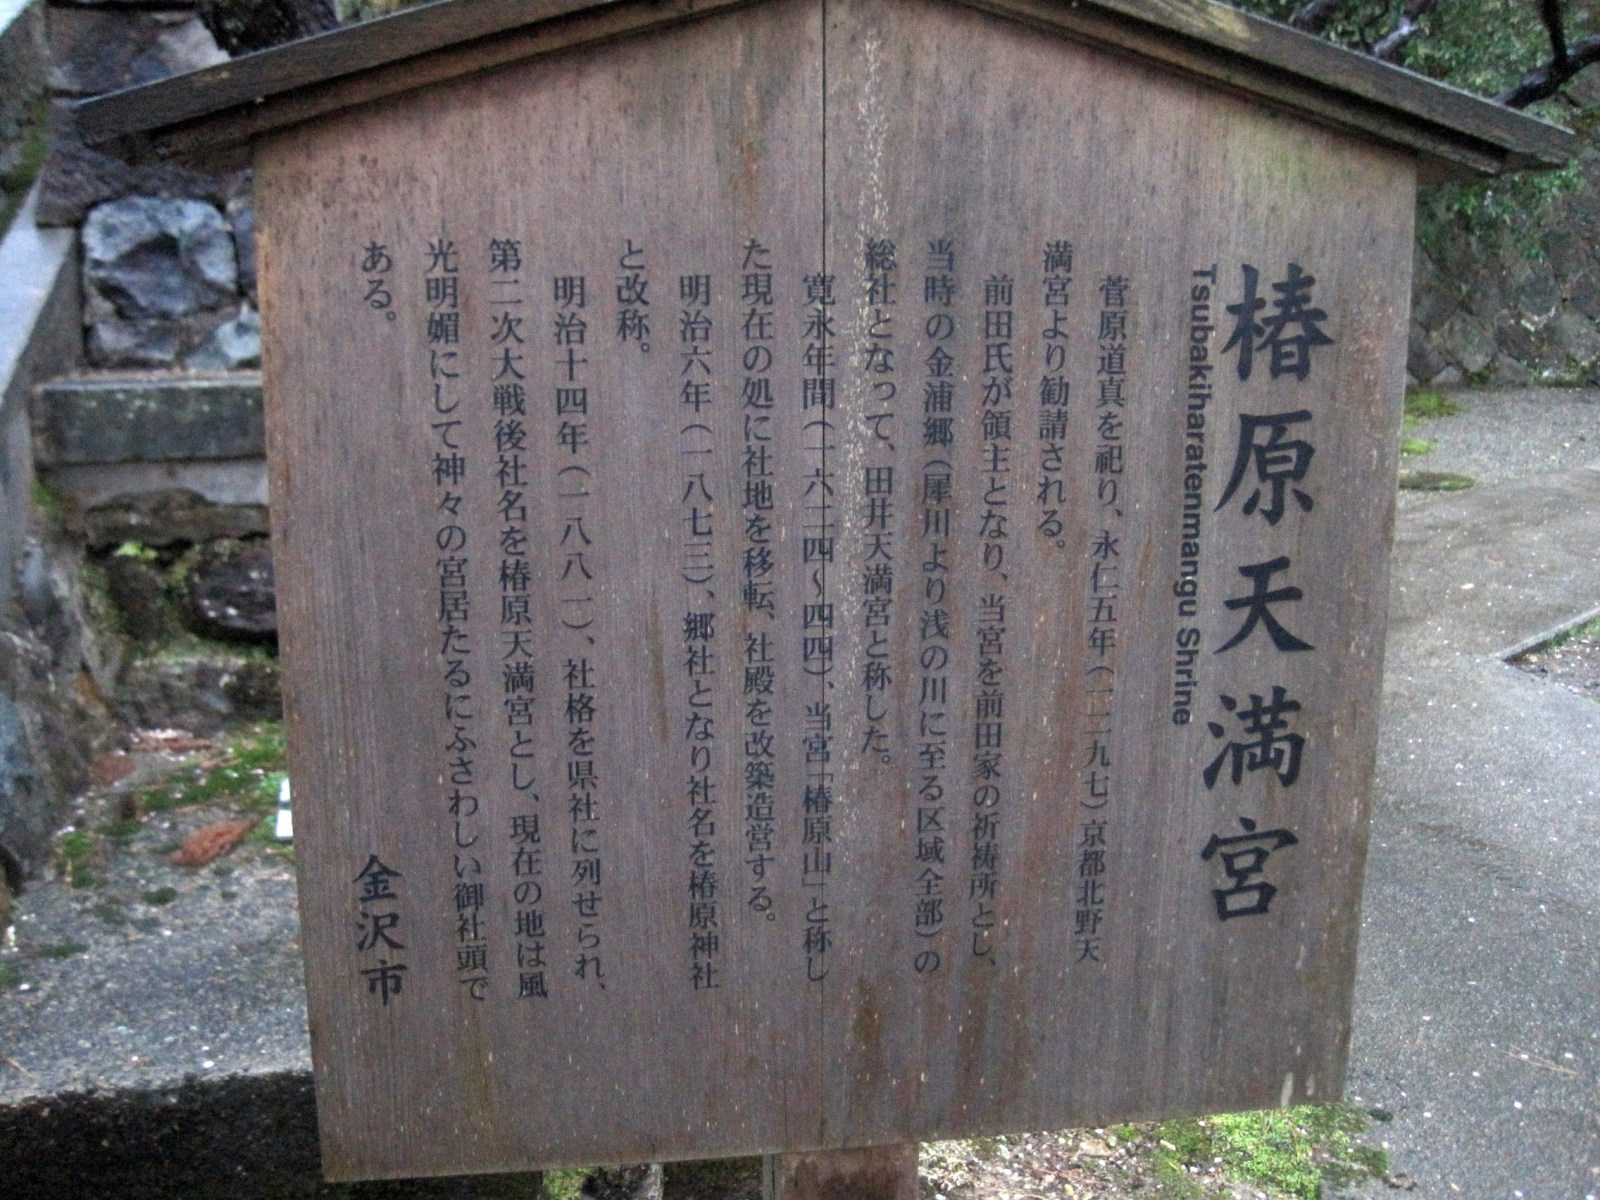 椿原天満宮
Tsubakiharatenmangu Shrine
菅原道真を祀り、永仁五年(一二九七)京都北野天
満宮より勧請される。
前田氏が領主となり、当宮を前田家の祈祷所とし、
当時の金浦郷(犀川より浅の川に至る区域全部)の
総社となって、田井天満宮と称した。
寛永年間(一六二四～四四)、当宮「椿原山」と称し
た現在の処に社地を移転、社殿を改築造営する。
明治六年(一八七三)、郷社となり社名を椿原神社
と改称。
明治十四年(一八八一)、社格を県社に列せられ、
第二次大戦後社名を椿原天満宮とし、現在の地は風
光明媚にして神々の宮居たるにふさわしい御社頭で
ある。
金沢市